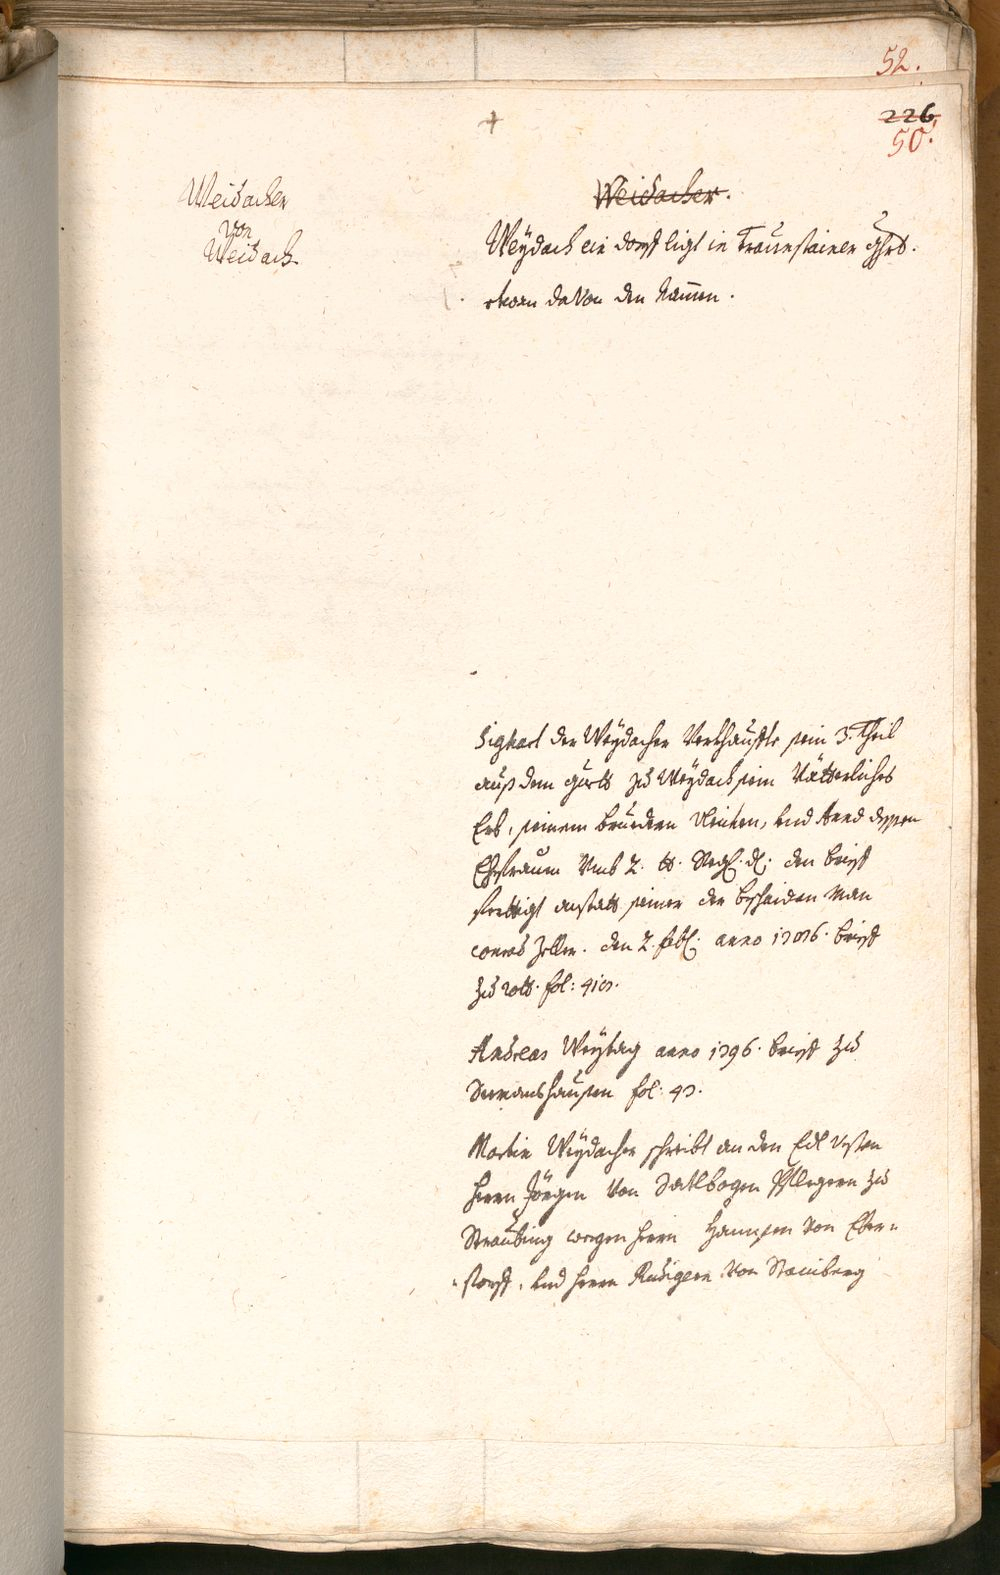 52.
226
50.
Weidacher
von
Weidach
Weidacher.
Weÿdach ein dorff ligt in Traunstainer ghrt.
davon den namen.
Sighart der Weÿdacher Verkhauffte sein 3. Theil
auß dem guett zu Weÿdach sein Vätterliches
Erb, seinem bruedern Ulrichen, und dessen
Ehefrauen Umb 2. den brief
ferttigt anstatt seiner der bscheiden Man
conrad Zeller. den 2. anno brieff
zu rott. fol:
Andreas Weÿtag anno 1396. brieff zu
fol: 43.
Martin Weÿdacher schreibt an den Edl Vesten
herrn Jörgen Von Satlbogen Pflegern zu
Straubing wegen herrn Hannsen Von Eber=
=storff, und herrn Rudigern Von Starnberg